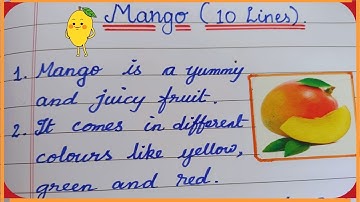 Mango (10 Lines).
1. Mango is a yummy
and juicy fruit.
2. It comes in different
colours like yellow,
green and red.